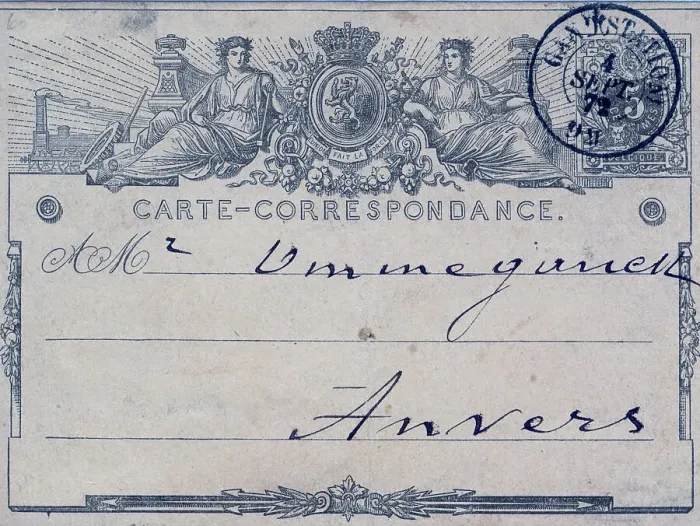 L'UNION FAIT LA FORCE
GAND (STATION)
4
SEPT.
72
5
BELGIQUE
CARTE-CORRESPONDANCE.
A Mr Ommeganck
Anvers